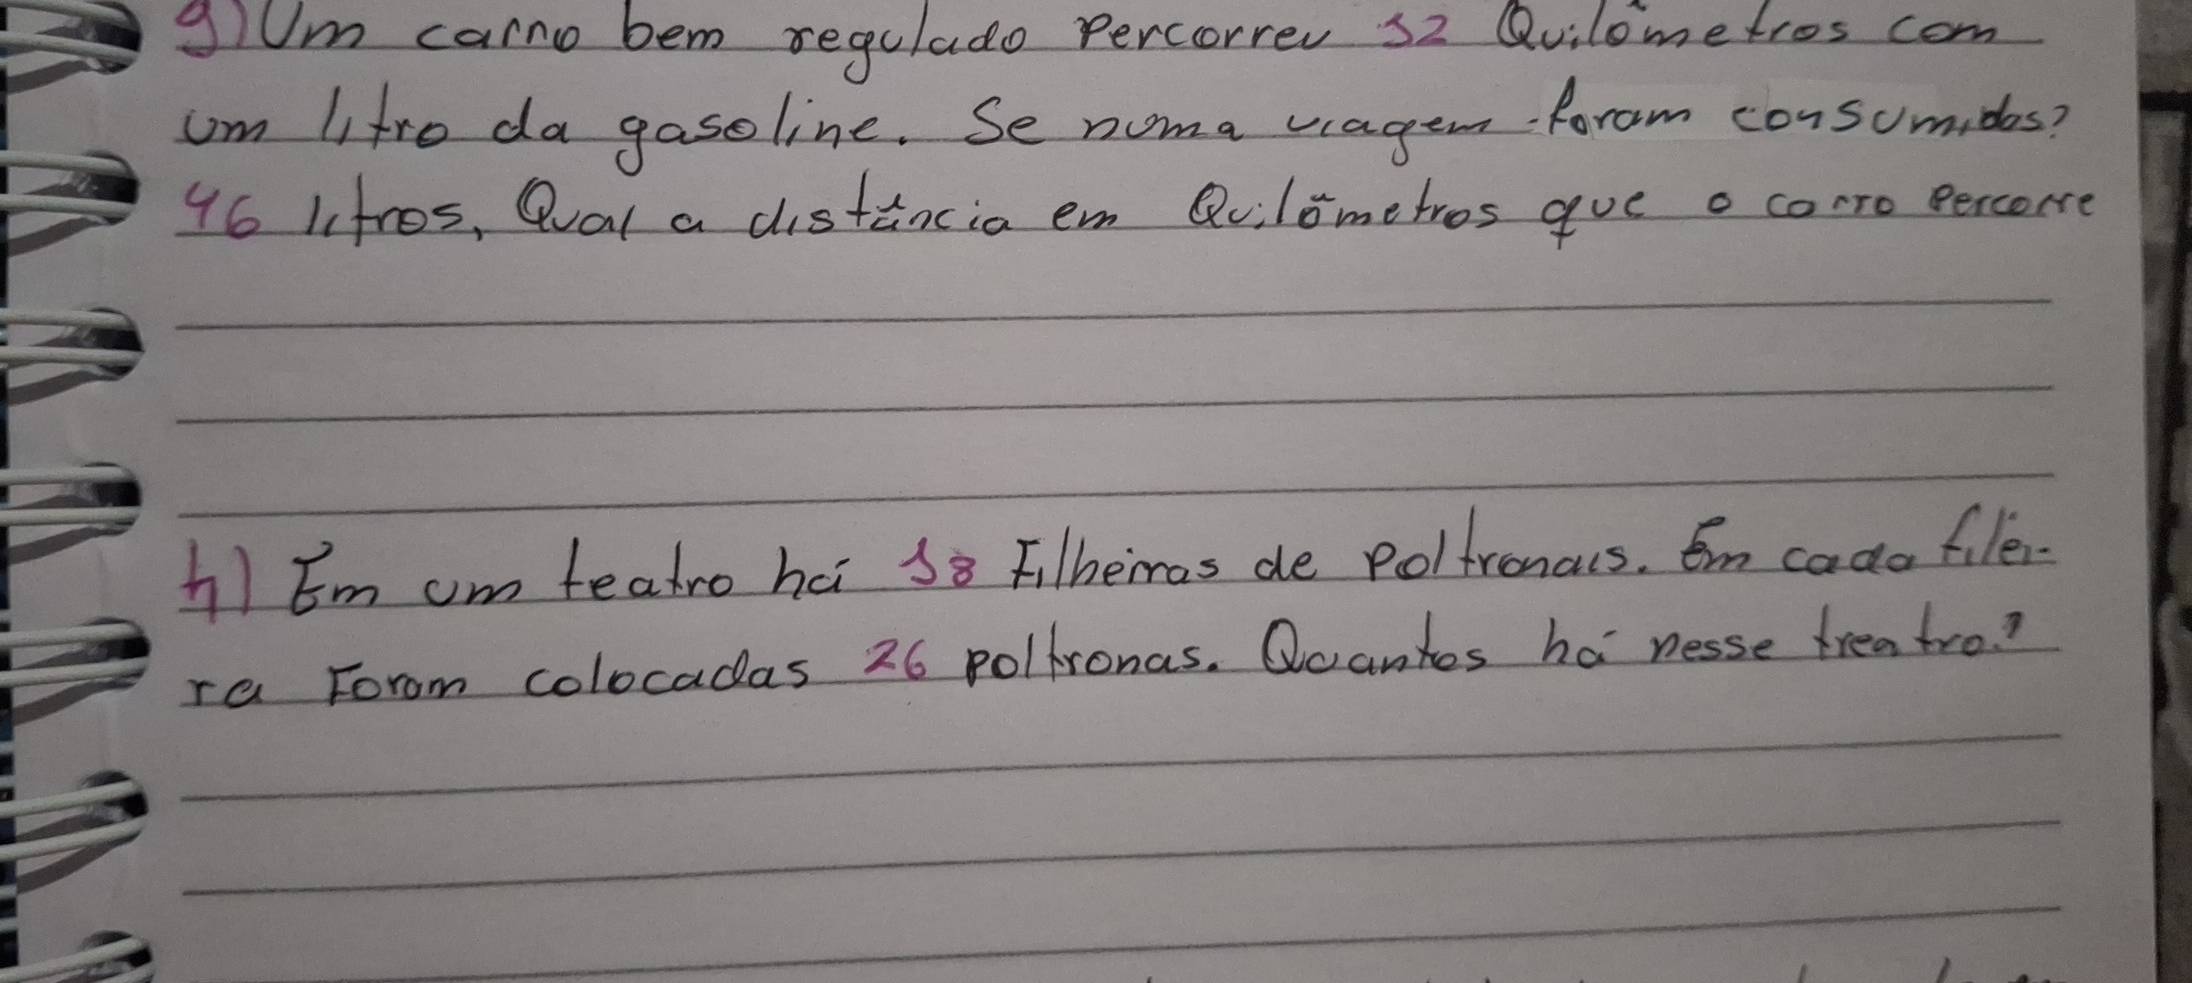 g) Um carno bem regulado percorreu 12 Quilômetros com
um litro da gasoline. Se numa viagem foram consumidos?
46 litros, Qual a distância em Quilômetros que o carro percorre
h) Em um teatro há 18 Filheiras de poltronais. Em cada filei-
ra Foram colocadas 26 poltronas. Quantos há nesse treatro?